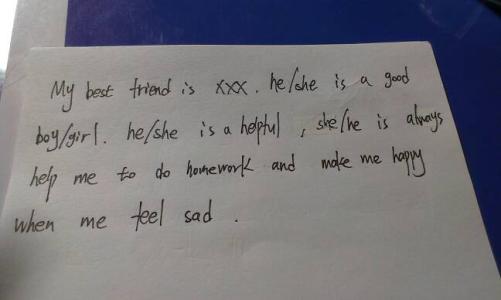 My best friend is xxx. he/she is a good
boy/girl. he/she is a helpful, she/he is always
help me to do homework and make me happy
when me feel sad.